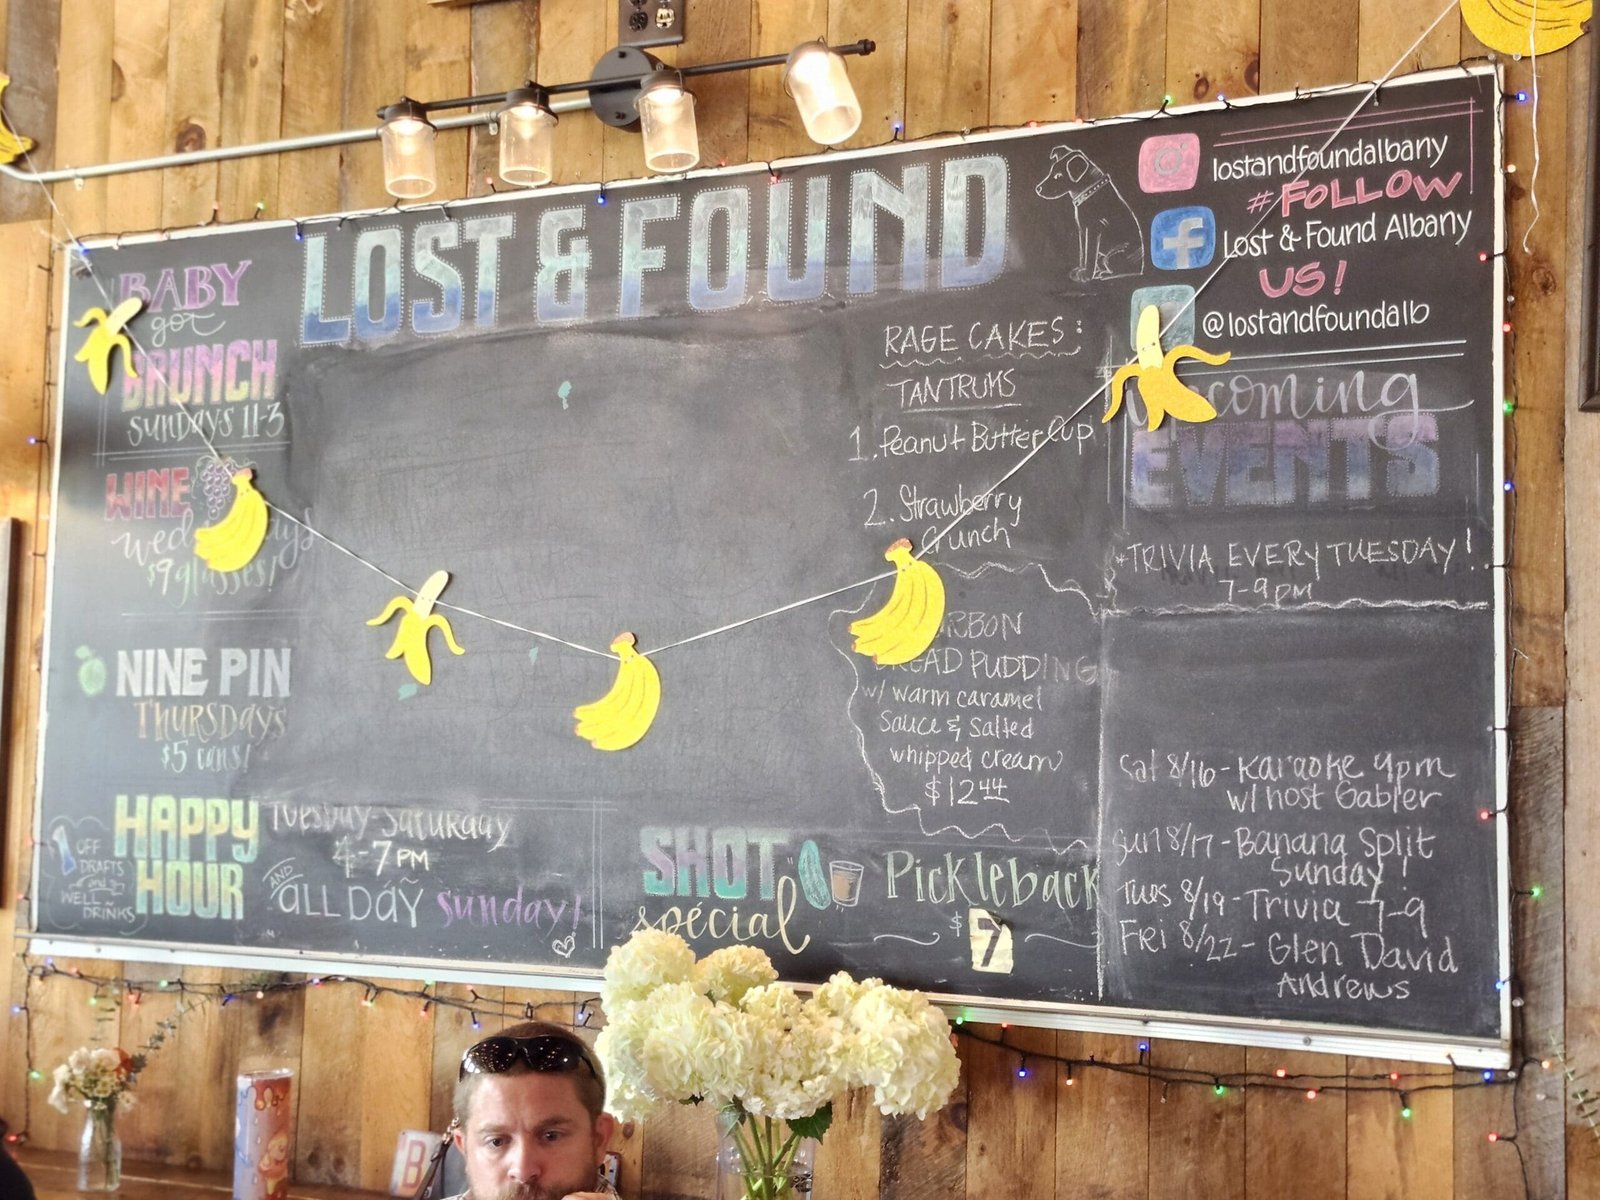 LOST & FOUND
BABY
got
BRUNCH
SUNDAYS 11-3
WINE
$9 glasses!
NINE PIN
THURSDAYS
$5 cans!
HAPPY
HOUR
OFF
DRAFTS
and
WELL
DRINKS
Tuesday-Saturday
4-7PM
AND
ALL DAY Sunday!
SHOT
special
Pickleback
$7
RAGE CAKES:
TANTRUMS
1. Peanut Butter Cup
2. Strawberry
Crunch
PUDDING
w/ warm caramel
Sauce & Salted
whipped cream
$12.44
lostandfoundalbany
#FOLLOW
Lost & Found Albany
US!
@lostandfoundalb
Upcoming
EVENTS
*TRIVIA EVERY TUESDAY!
7-9PM
Sat 8/16 - Karaoke 9pm
w/ host Gabler
Sun 8/17 - Banana Split
Sunday!
Tues 8/19 - Trivia 7-9
Fri 8/22 - Glen David
Andrews
B